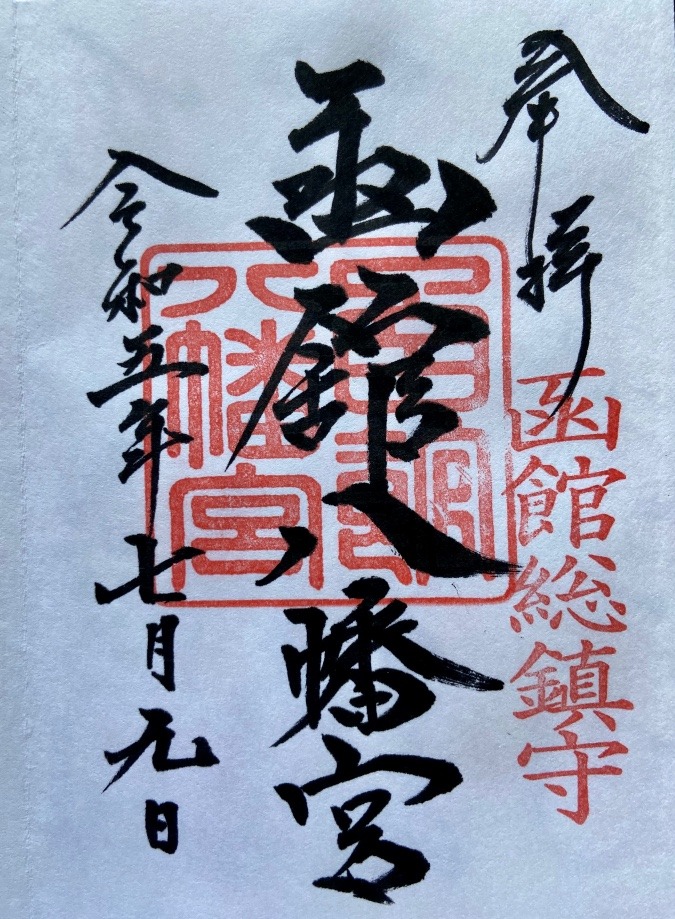 奉拝
函館総鎮守
函館八幡宮
八幡宮
令和五年七月元日